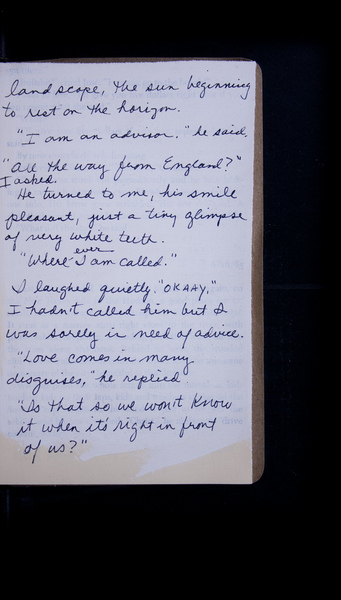 landscape, the sun beginning
to rest on the horizon.
"I am an advisor." he said.
"All the way from England?"
I asked.
He turned to me, his smile
pleasant, just a tiny glimpse
of very white teeth.
"Where ever I am called."
I laughed quietly. "OKAAY."
I hadn't called him but I
was sorely in need of advice.
"Love comes in many
disguises," he replied.
"Is that so we won't know
it when it's right in front
of us?"